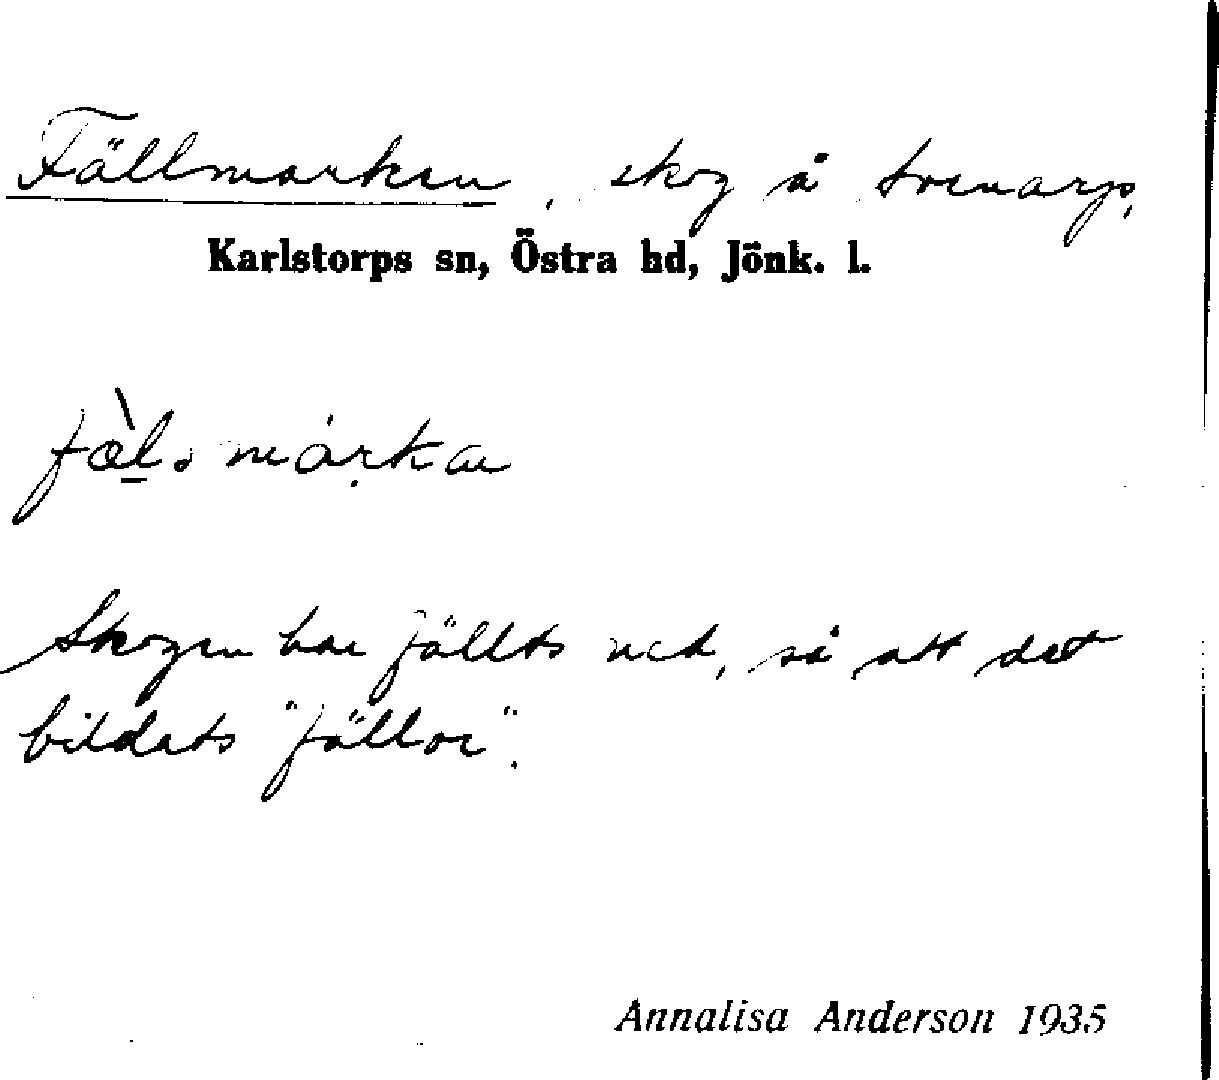 Fällmarken, skog å
Karlstorps sn, Östra hd, Jönk. l.
Skogen har fällts ned, så att det
bildats "fällor".
Annalisa Anderson 1935